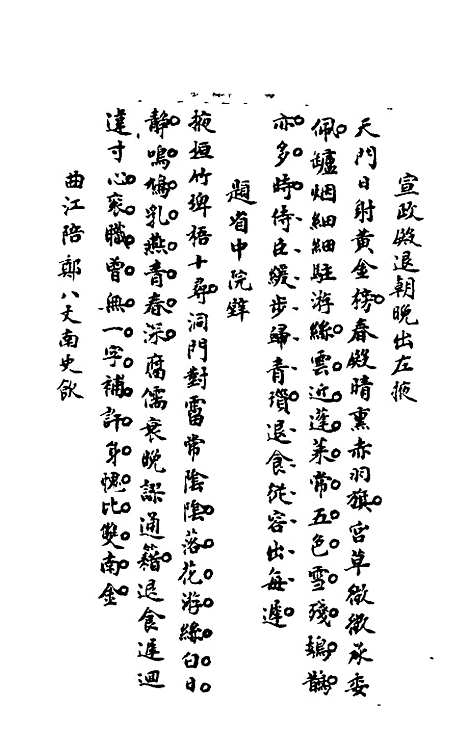 宣政殿退朝晚出左掖
天門日射黃金榜春殿晴熏赤羽旗宮草微微承委
佩罏烟細細駐游絲雲近蓬萊常五色雪殘鳷鵲
亦多時侍臣緩步歸青瑣退食從容出每遲
題省中院壁
掖垣竹埤梧十尋洞門對霤常陰陰落花游絲白日
靜鳴鳩乳燕青春深腐儒衰晚謬通籍退食遲迴
違寸心袞職曾無一字補許身愧比雙南金
曲江陪鄭八丈南史飲